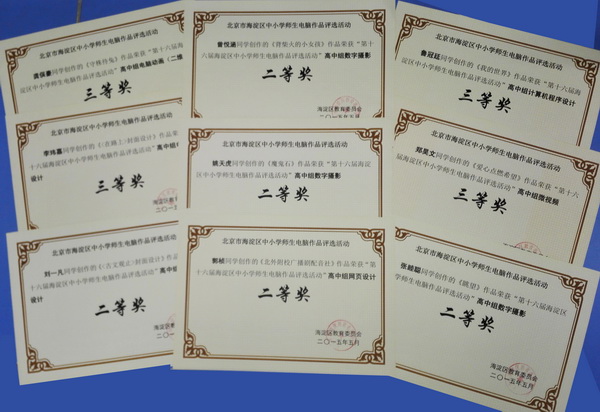 北京市海淀区中小学师生电脑作品评选活动
龚保豪同学创作的《守株待兔》作品荣获“第十六届海
淀区中小学师生电脑作品评选活动”高中组电脑动画（二维
三等奖
北京市海淀区中小学师生电脑作品评选活动
曾悦涵同学创作的《背柴火的小女孩》作品荣获“第十
六届海淀区中小学师生电脑作品评选活动”高中组数字摄影
二等奖
海淀区教育委员会
二〇一五年五月
北京市海淀区中小学师生电脑作品评选活动
鲁冠廷同学创作的《我的世界》作品荣获“第十六届海
淀区中小学师生电脑作品评选活动”高中组计算机程序设计
三等奖
北京市海淀区中小学师生电脑作品评选活动
十六届海淀区中小学师生电脑作品评选活动”高中组
设计
三等奖
海淀区教
二〇一五
北京市海淀区中小学师生电脑作品评选活动
姚天虎同学创作的《魔鬼石》作品荣获“第十六届海淀
区中小学师生电脑作品评选活动”高中组数字摄影
二等奖
北京市海淀区中小学师生电脑作品评选活动
郑昊文同学创作的《爱心点燃希望》作品荣获“第十六
届海淀区中小学师生电脑作品评选活动”高中组微视频
三等奖
北京市海淀区中小学师生电脑作品评选活动
刘一凡同学创作的《古文观止》封面设计》作品
十六届海淀区中小学师生电脑作品评选活动”高中组
设计
二等奖
海淀区教
二〇一五年
北京市海淀区中小学师生电脑作品评选活动
郭桢同学创作的《北外附校广播剧配音社》作品荣获“第
十六届海淀区中小学师生电脑作品评选活动”高中组网页设计
二等奖
海淀区教育委员会
二〇一五年五月
北京市海淀区中小学师生电脑作品评选活动
张皓聪同学创作的《眺望》作品荣获“第十六届海淀区
中小学师生电脑作品评选活动”高中组数字摄影
二等奖
海淀区教育委员会
二〇一五年五月